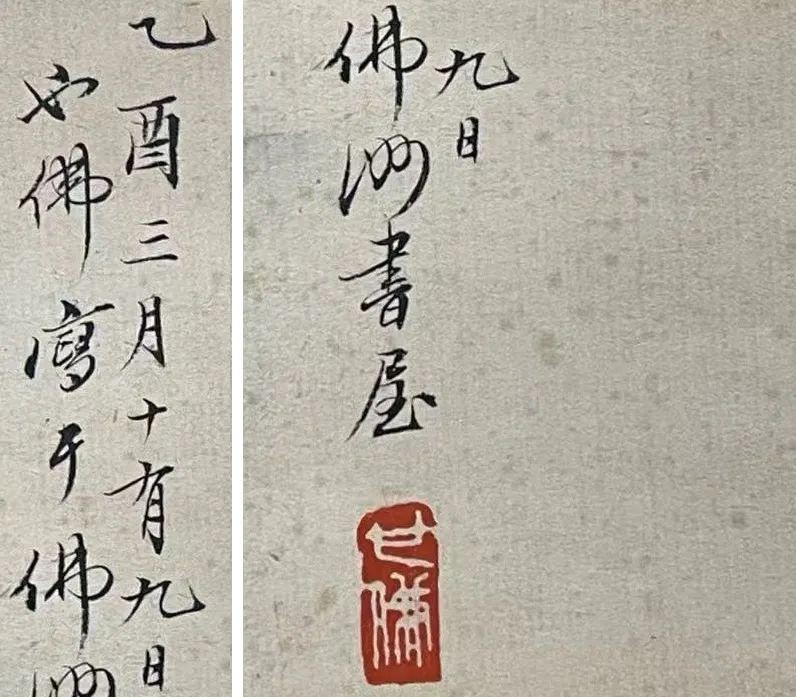 乙酉三月十有九日
佛寫于佛洲
九日
佛洲書屋